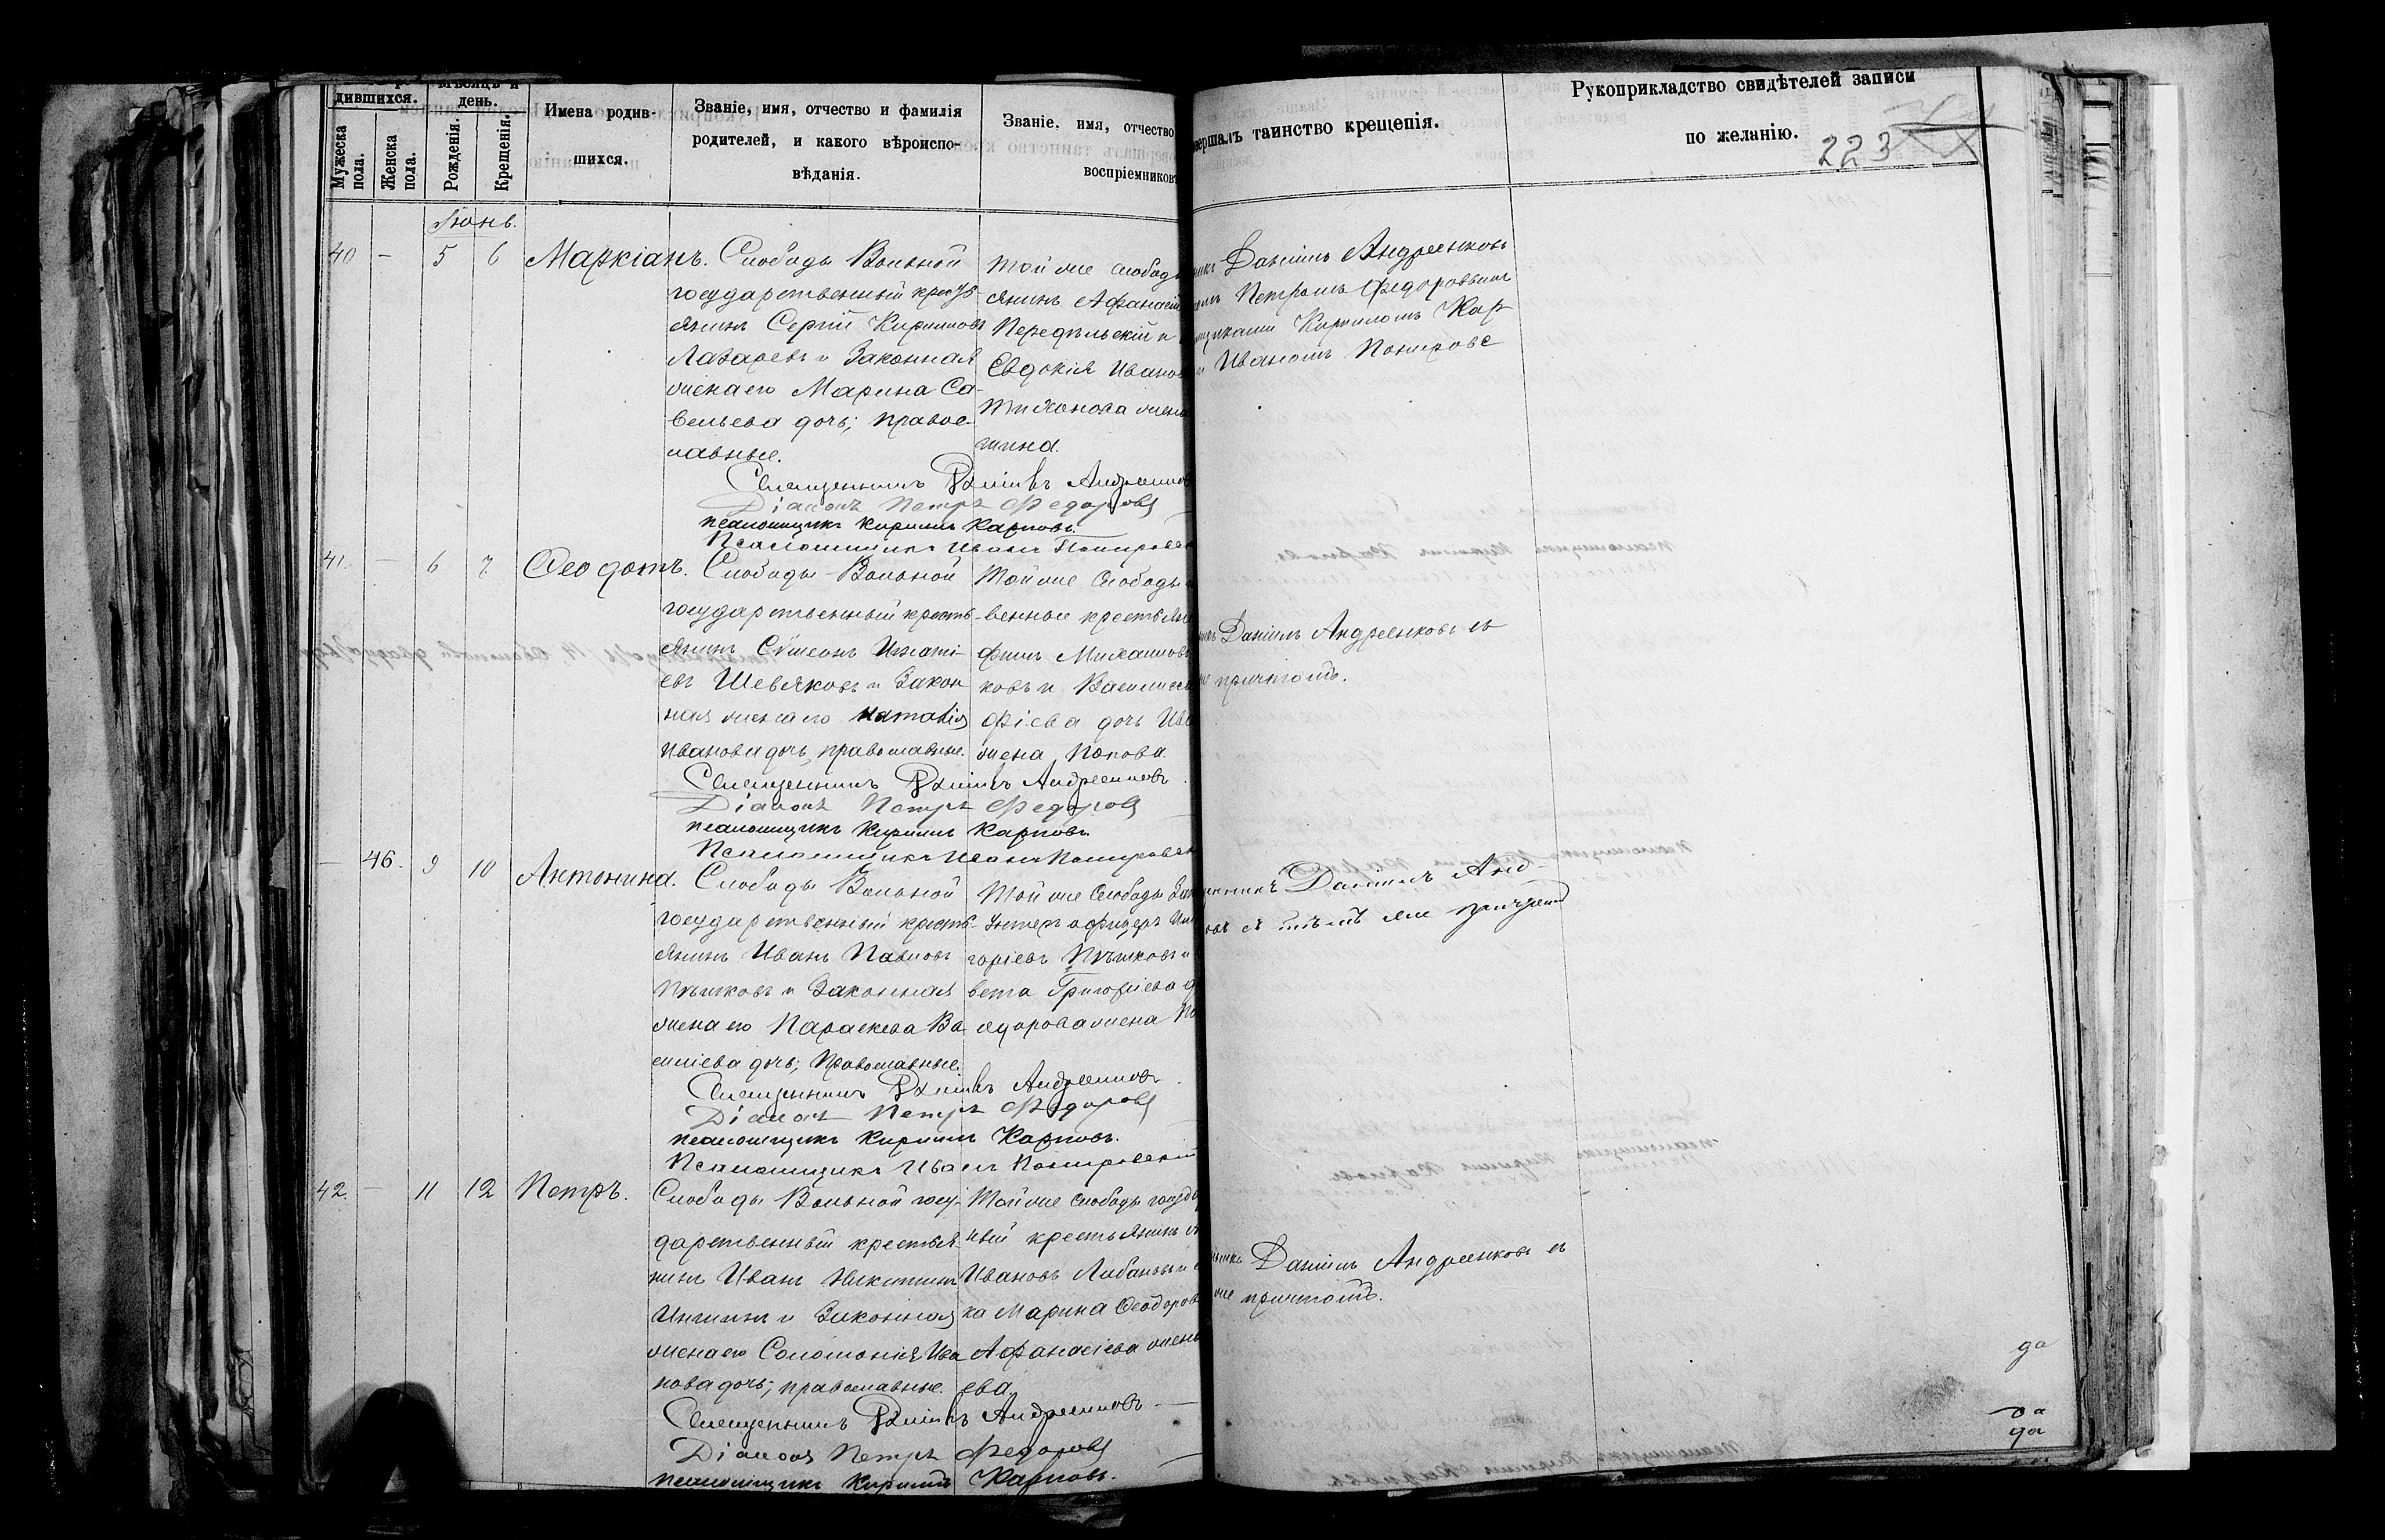 дившихся.
день.
Мужеска пола.
Женска пола.
Рожденія.
Крещенія.
Имена родив-
шихся.
Званіе, имя, отчество и фамилія
родителей, и какого вѣроиспо-
вѣданія.
Званіе, имя, отчество
воспріемниковъ
таинство крещенія.
Рукоприкладство свидѣтелей записи
по желанію.
223
Іюнь.
40 - 5 6 Маркіанъ.
Слободы Вольной
государственный кресть-
янинъ Сергій Кириловъ
Лазаревъ и законная
жена его Марина Са-
вельева дочь; правос-
лавные.
Той же слободы
янинъ Афанасій
Передѣльскій и
Евдокія Иванов
Тихонова жена
гина.
Даніилъ Андреенковъ
Петромъ Федоровымъ
Кириломъ Кар-
и Иваномъ Покировс
Священникъ Даніилъ Андреенковъ
Діаконъ Петръ Федоровъ
псаломщикъ Кирилъ Карповъ.
Псаломщикъ Иванъ Покировск
41. - 6 7 Ѳеодотъ.
Слободы Вольной
государственный кресть-
янинъ Сѵмеонъ Игнаті-
евъ Шевляковъ и закон
ная жена его Наталія
Иванова дочь, православные.
Той же слободы
венные крестьяне
фимъ Михаиловъ
ковъ и Василисса
фіева дочь Ива
жена Попова.
Даніилъ Андреенковъ съ
причтомъ.
Священникъ Даніилъ Андреенковъ
Діаконъ Петръ Федоровъ
псаломщикъ Кирилъ Карповъ.
Псаломщикъ Иванъ Покировск
- 46. 9 10 Антонина.
Слободы Вольной
государственный кресть-
янинъ Иванъ Павловъ
Пѣшковъ и законная
жена его Параскева Ва
силіева дочь; православные.
Той же слободы
Унтеръ офицеръ
горіевъ Пѣшковъ и
вета Григоріева
жена
Даніилъ Анд-
съ тѣмъ же причтомъ
Священникъ Даніилъ Андреенковъ
Діаконъ Петръ Федоровъ
псаломщикъ Кирилъ Карповъ.
Псаломщикъ Иванъ Покировскій
42. - 11 12 Петръ.
Слободы Вольной госу-
дарственный крестья-
нинъ Иванъ Никитинъ
и законная
жена его Соломонія Ива
нова дочь; православные.
Той же слободы госуда
ный крестьянинъ
Ивановъ Лабанъ и
ка Марина Ѳеодоров
Афанасіева жена
ева.
Даніилъ Андреенковъ съ
же причтомъ.
Священникъ Даніилъ Андреенковъ
Діаконъ Петръ Федоровъ
псаломщикъ Кирилъ Карповъ.
да
да
да